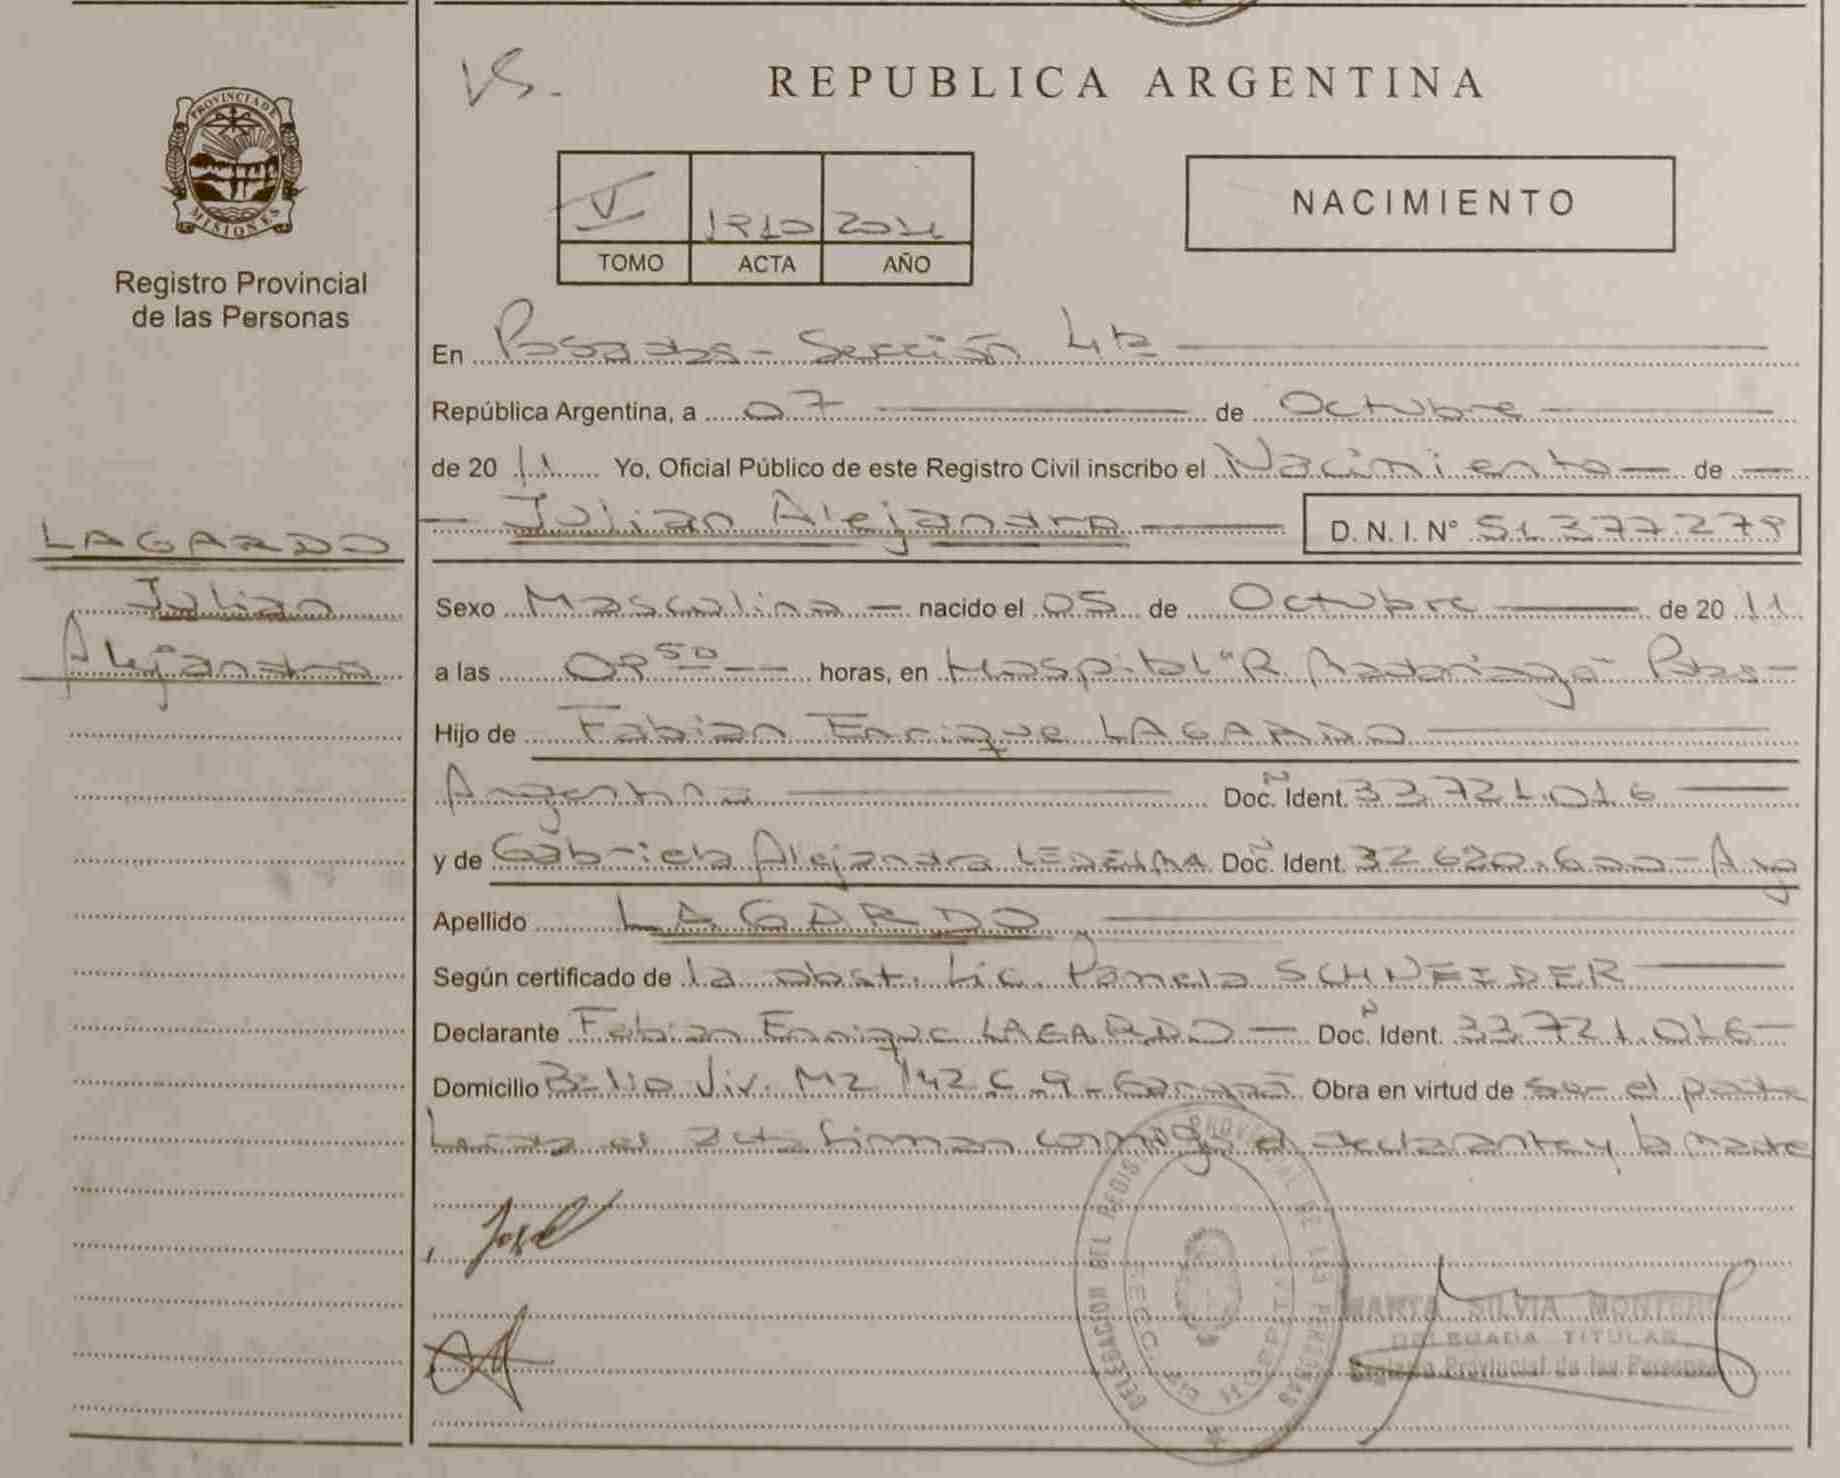 PROVINCIA DE
MISIONES
Registro Provincial
de las Personas
LAGARDO
Julian
Alejandro
VS.
REPUBLICA ARGENTINA
V 1210 2011
TOMO ACTA AÑO
NACIMIENTO
En Posadas - Sección 4ta
República Argentina, a 07 de Octubre
de 20 11 Yo, Oficial Público de este Registro Civil inscribo el Nacimiento de
Julian Alejandro D. N. I. N° 51.377.279
Sexo Masculino nacido el 05 de Octubre de 20 11
a las horas, en Hospital "R. Madariaga" Pdas
Hijo de Fabian Enrique LAGARDO
Argentina Doc. Ident. 33.721.016
y de Gabriela Alejandra LEDESMA Doc. Ident. 32.620.600 - Arg
Apellido LAGARDO
Según certificado de la obst. Lic. Pamela SCHNEIDER
Declarante Fabian Enrique LAGARDO Doc. Ident. 33.721.016
Domicilio Viv. Mz 142 C. 9 - Garupá Obra en virtud de ser el padre
Leída el acta firman conmigo el declarante y la madre
DELEGACION DEL REGISTRO PROVINCIAL DE LAS PERSONAS
HOSPITAL
MARTA SILVIA MONTERO
DELEGADA TITULAR
Registro Provincial de las Personas